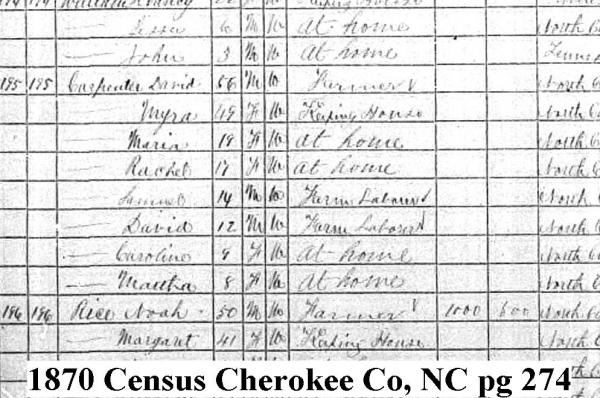 Nancy Keeping House
Jesse 6 M W At home North C
John 3 M W At home Tenne
195 195 Carpenter David 56 M W Farmer North C
— Myra 49 F W Keeping House North Ca
— Maria 19 F W At home North C
— Rachel 17 F W At home North C
— Samuel 14 M W Farm Laborer North C
— David 12 M W Farm Laborer North C
— Caroline 9 F W At home North C
— Martha 8 F W At home North C
196 196 Rice Noah 50 M W Farmer 1000 600 North Ca
— Margaret 41 F W Keeping House North C
1870 Census Cherokee Co, NC pg 274